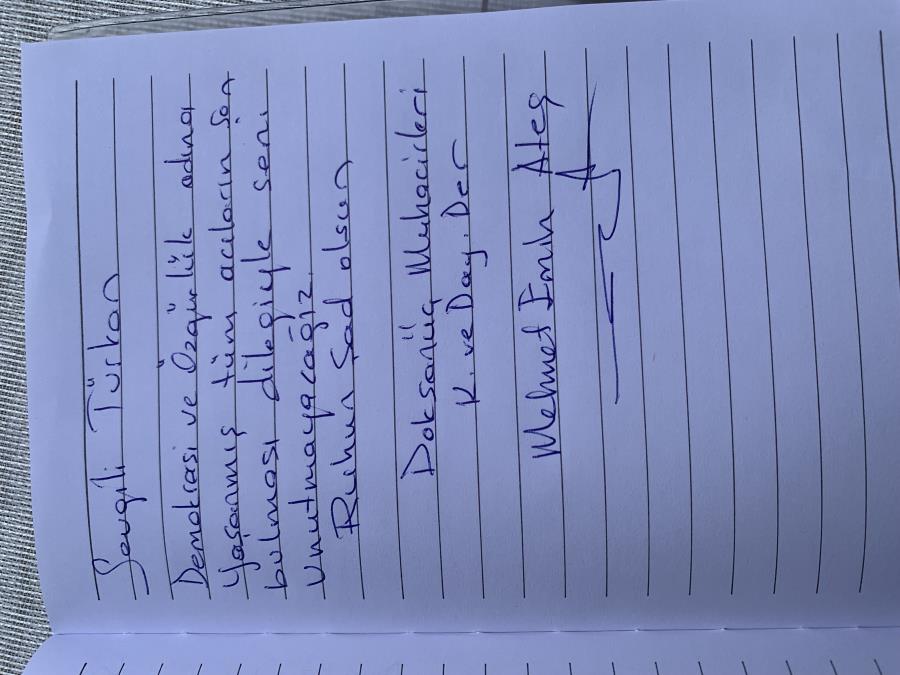 Sevgili Türkan
Demokrasi ve Özgürlük adına
yaşanmış tüm acıların son
bulması dileğiyle seni
unutmayacağız.
Ruhun şad olsun
Doksanüç Muhacirleri
K. ve Day. Der
Mehmet Emin Ateş